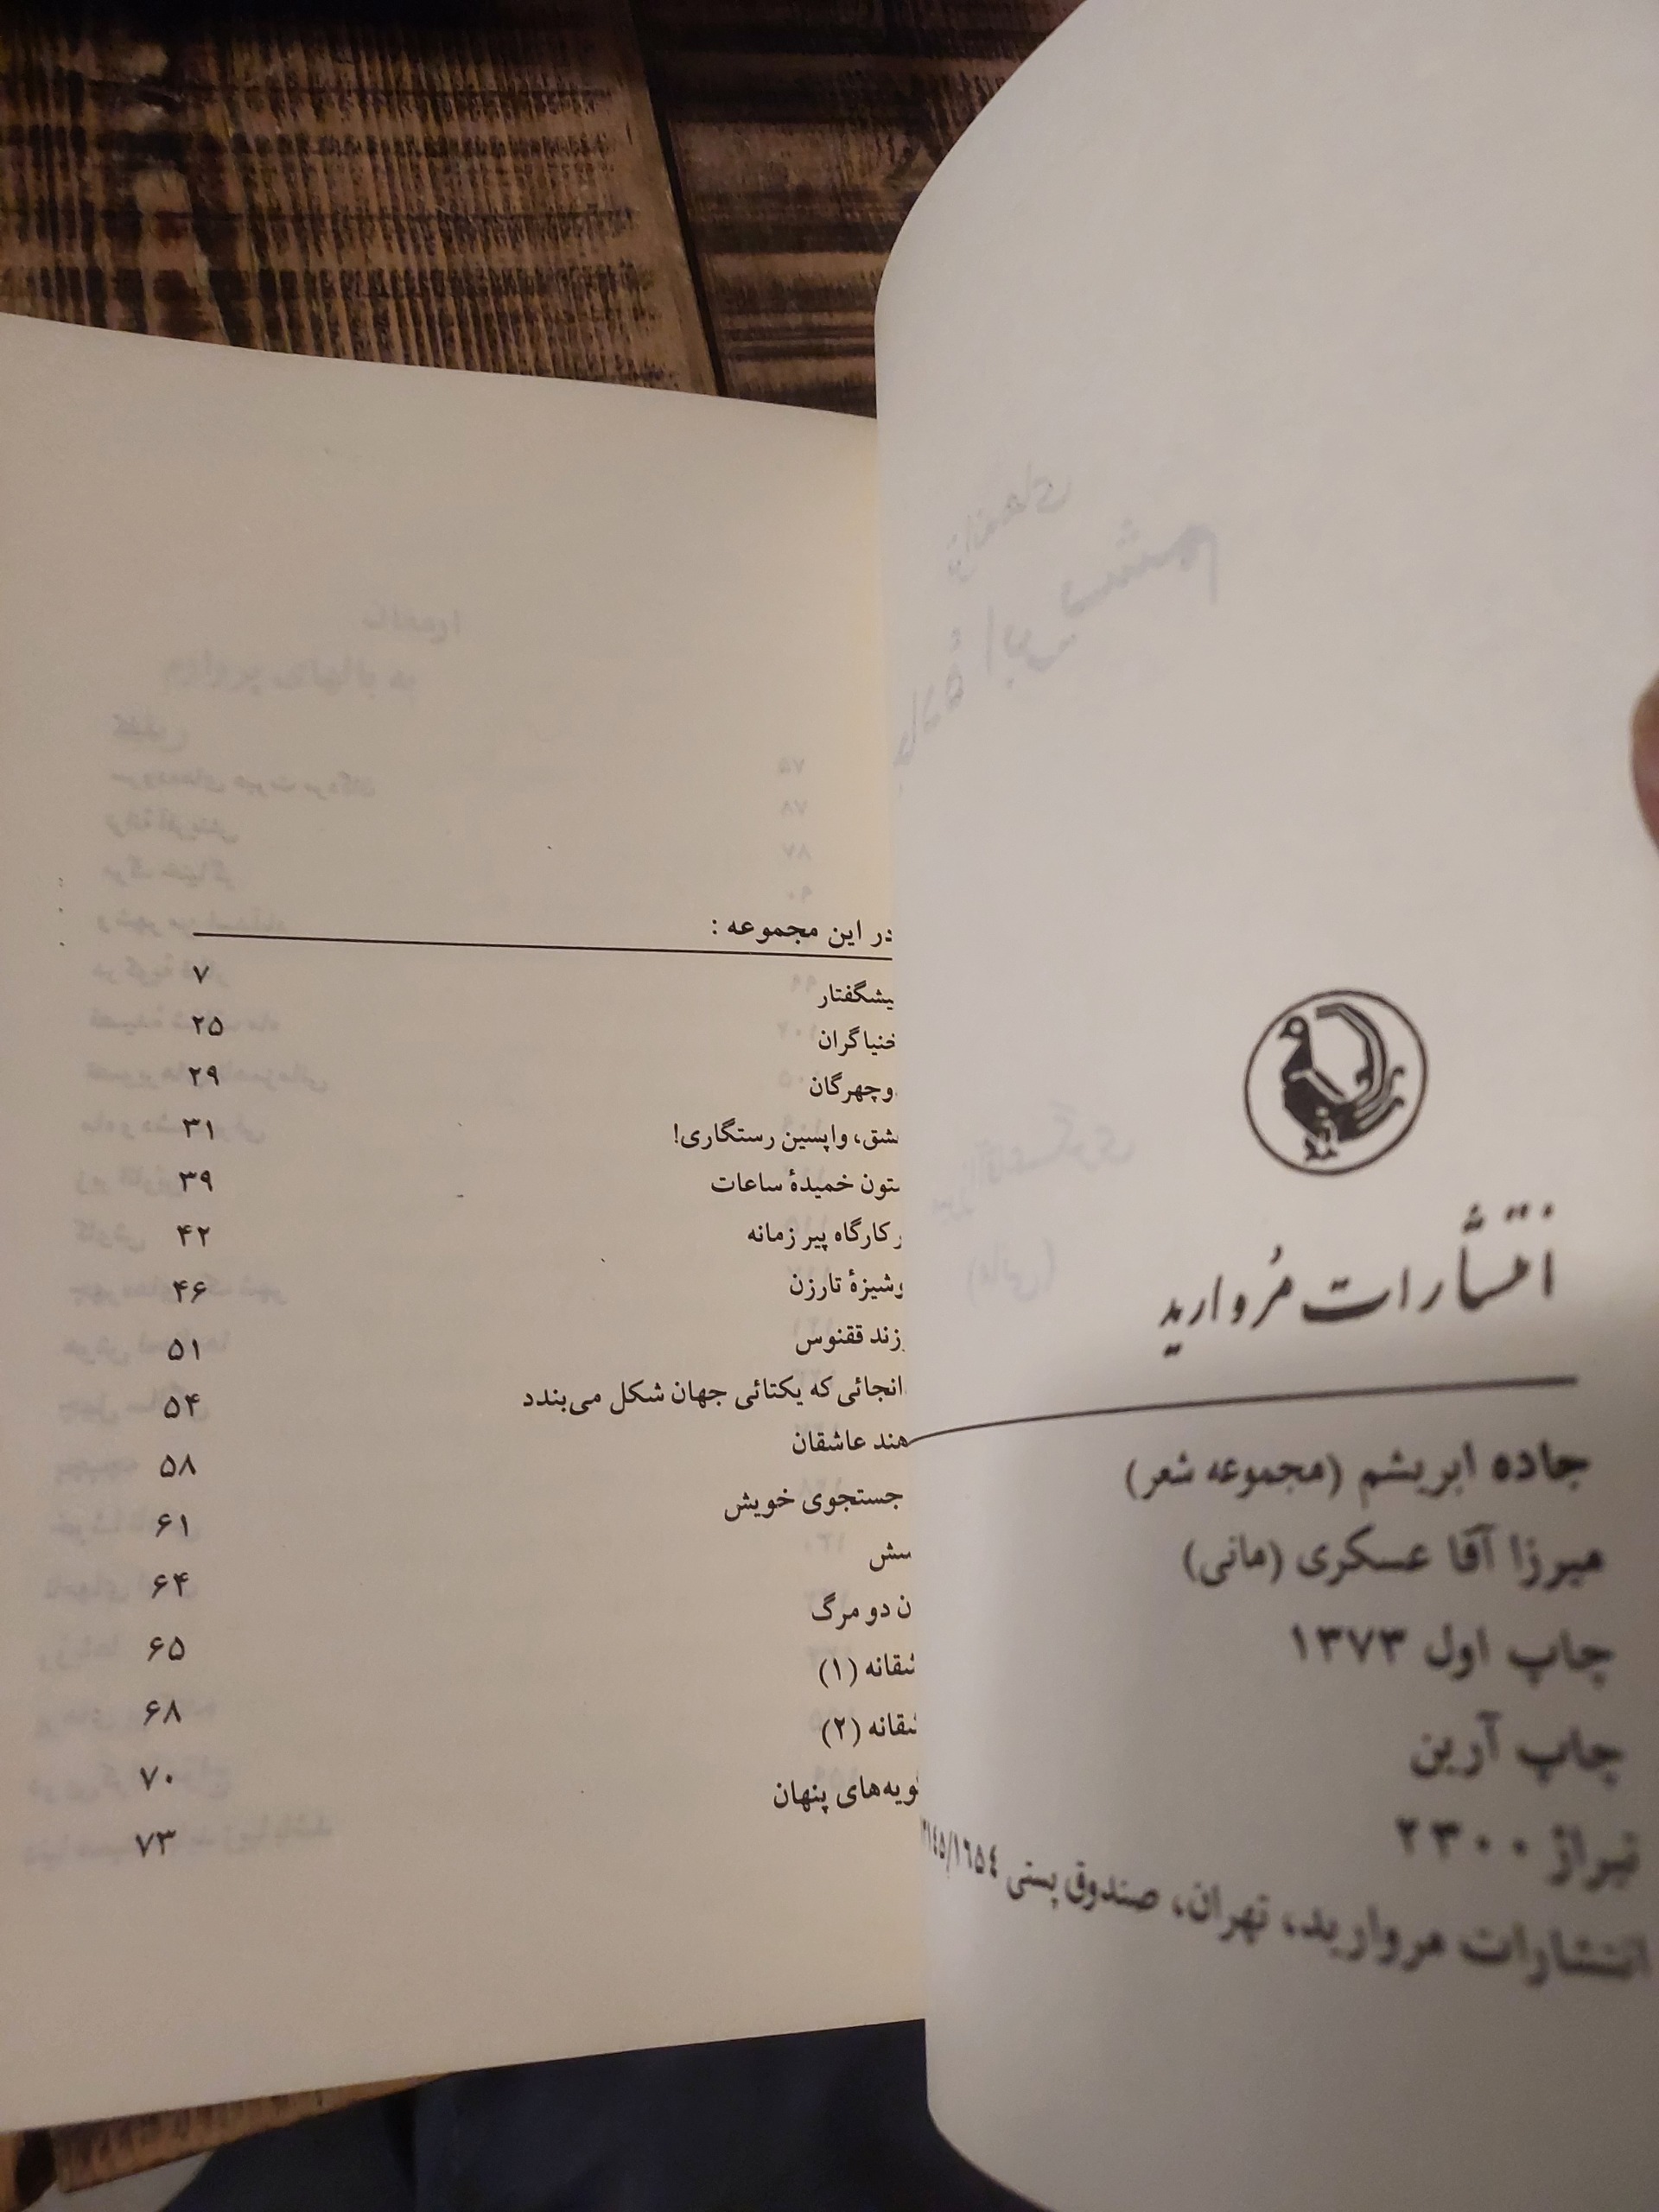 انتشارات مروارید
جاده ابریشم (مجموعه شعر)
میرزا آقا عسکری (مانی)
چاپ اول ۱۳۷۳
چاپ آرین
تیراژ ۲۳۰۰
انتشارات مروارید، تهران، صندوق پستی
در این مجموعه :
یشگفتار ۷
خنیاگران ۲۵
وچهرگان ۲۹
شق، واپسین رستگاری! ۳۱
تون خمیدۀ ساعات ۳۹
ر کارگاه پیر زمانه ۴۲
وشیزۀ تارزن ۴۶
زند ققنوس ۵۱
انجائی که یکتائی جهان شکل می‌بندد ۵۴
هند عاشقان ۵۸
جستجوی خویش ۶۱
سش ۶۴
ن دو مرگ ۶۵
شقانه (۱) ۶۸
شقانه (۲) ۷۰
ویه‌های پنهان ۷۳